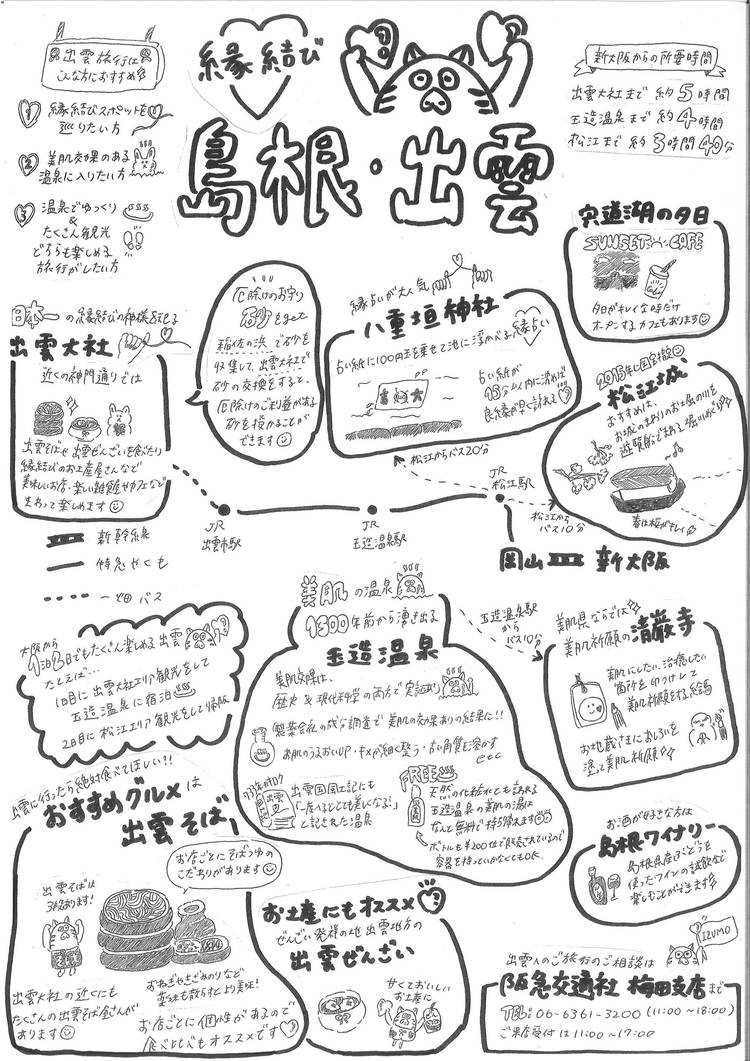 出雲旅行は
こんな方におすすめ
1 縁結びスポットを
巡りたい方
2 美肌効果のある
温泉に入りたい方
3 温泉でゆっくり
&
たくさん観光
どちらも楽しめる
旅行がしたい方
縁結び
島根・出雲
新大阪からの所要時間
出雲大社まで 約5時間
玉造温泉まで 約4時間
松江まで 約3時間40分
宍道湖の夕日
SUNSET CAFE
夕日がキレイな時だけ
オープンするカフェもあります
日本一の縁結びの神様を祀る
出雲大社
近くの神門通りでは
出雲そばや出雲ぜんざいを食べたり
縁結びのお土産屋さんなど
美味しいお店・楽しい雑貨やカフェなど
まわって楽しめます
厄除けのお守り
砂をget
稲佐の浜で砂を
収集して、出雲大社で
砂の交換をすると、
厄除けのご利益がある
砂を授かることが
できます
縁占いが大人気
八重垣神社
占い紙に100円玉を乗せて池に浮かべる縁占い
占い紙が
15分以内に沈めば
良縁が早く訪れる
2015年に国宝指定
松江城
おすすめは、
お城のまわりのお堀の川を
遊覧船でまわる堀川めぐり
春は桜がキレイ
松江からバス20分
松江から
バス10分
JR
出雲市駅
JR
玉造温泉駅
JR
松江駅
岡山 新大阪
新幹線
特急やくも
一畑バス
大阪から
1泊2日でもたくさん楽しめる出雲
たとえば…
1日目に出雲大社エリア観光をして
玉造温泉に宿泊
2日目に松江エリア観光をして帰阪
美肌の温泉
1300年前から湧き出る
玉造温泉
美肌効果は、
歴史&現代科学の両方で実証あり
製薬会社の成分調査で美肌の効果ありの結果に!!
お肌のうるおいUP・キメが細く整う・古い角質を溶かす
etc
733年の
出雲国風土記にも
「一度入るととても美しくなる!」
と記された温泉
FREE
天然の化粧水とも言われる
玉造温泉の美肌の湯が
なんと無料で持ち帰れます
ボトルも¥200位で販売されているので
容器を持っていかなくてもOK
玉造温泉駅
から
バス10分
美肌県ならでは
美肌祈願の清巌寺
美肌にしたい、治癒したい
箇所を印つけして
美肌祈願をする絵馬
お地蔵さまにおしろいを
塗って美肌祈願
お酒が好きな方は
島根ワイナリー
島根県産ぶどうを
使ったワインの試飲など
楽しむことができます
出雲に行ったら絶対食べてほしい!!
おすすめグルメは
出雲そば
お店ごとにそばつゆの
こだわりがあります
出雲そばは
3段あります!
おねぎやきざみのりなど
薬味も散らすとより美味!
出雲大社の近くにも
たくさんの出雲そば屋さんが
あります
お店ごとに個性があるので
食べ比べもオススメです
お土産にもオススメ
ぜんざい発祥の地 出雲地方の
出雲ぜんざい
甘くておいしい
お土産に
IZUMO
出雲へのご旅行のご相談は
阪急交通社 梅田支店まで
TEL:06-6361-3200 (11:00~18:00)
ご来店受付は11:00~17:00